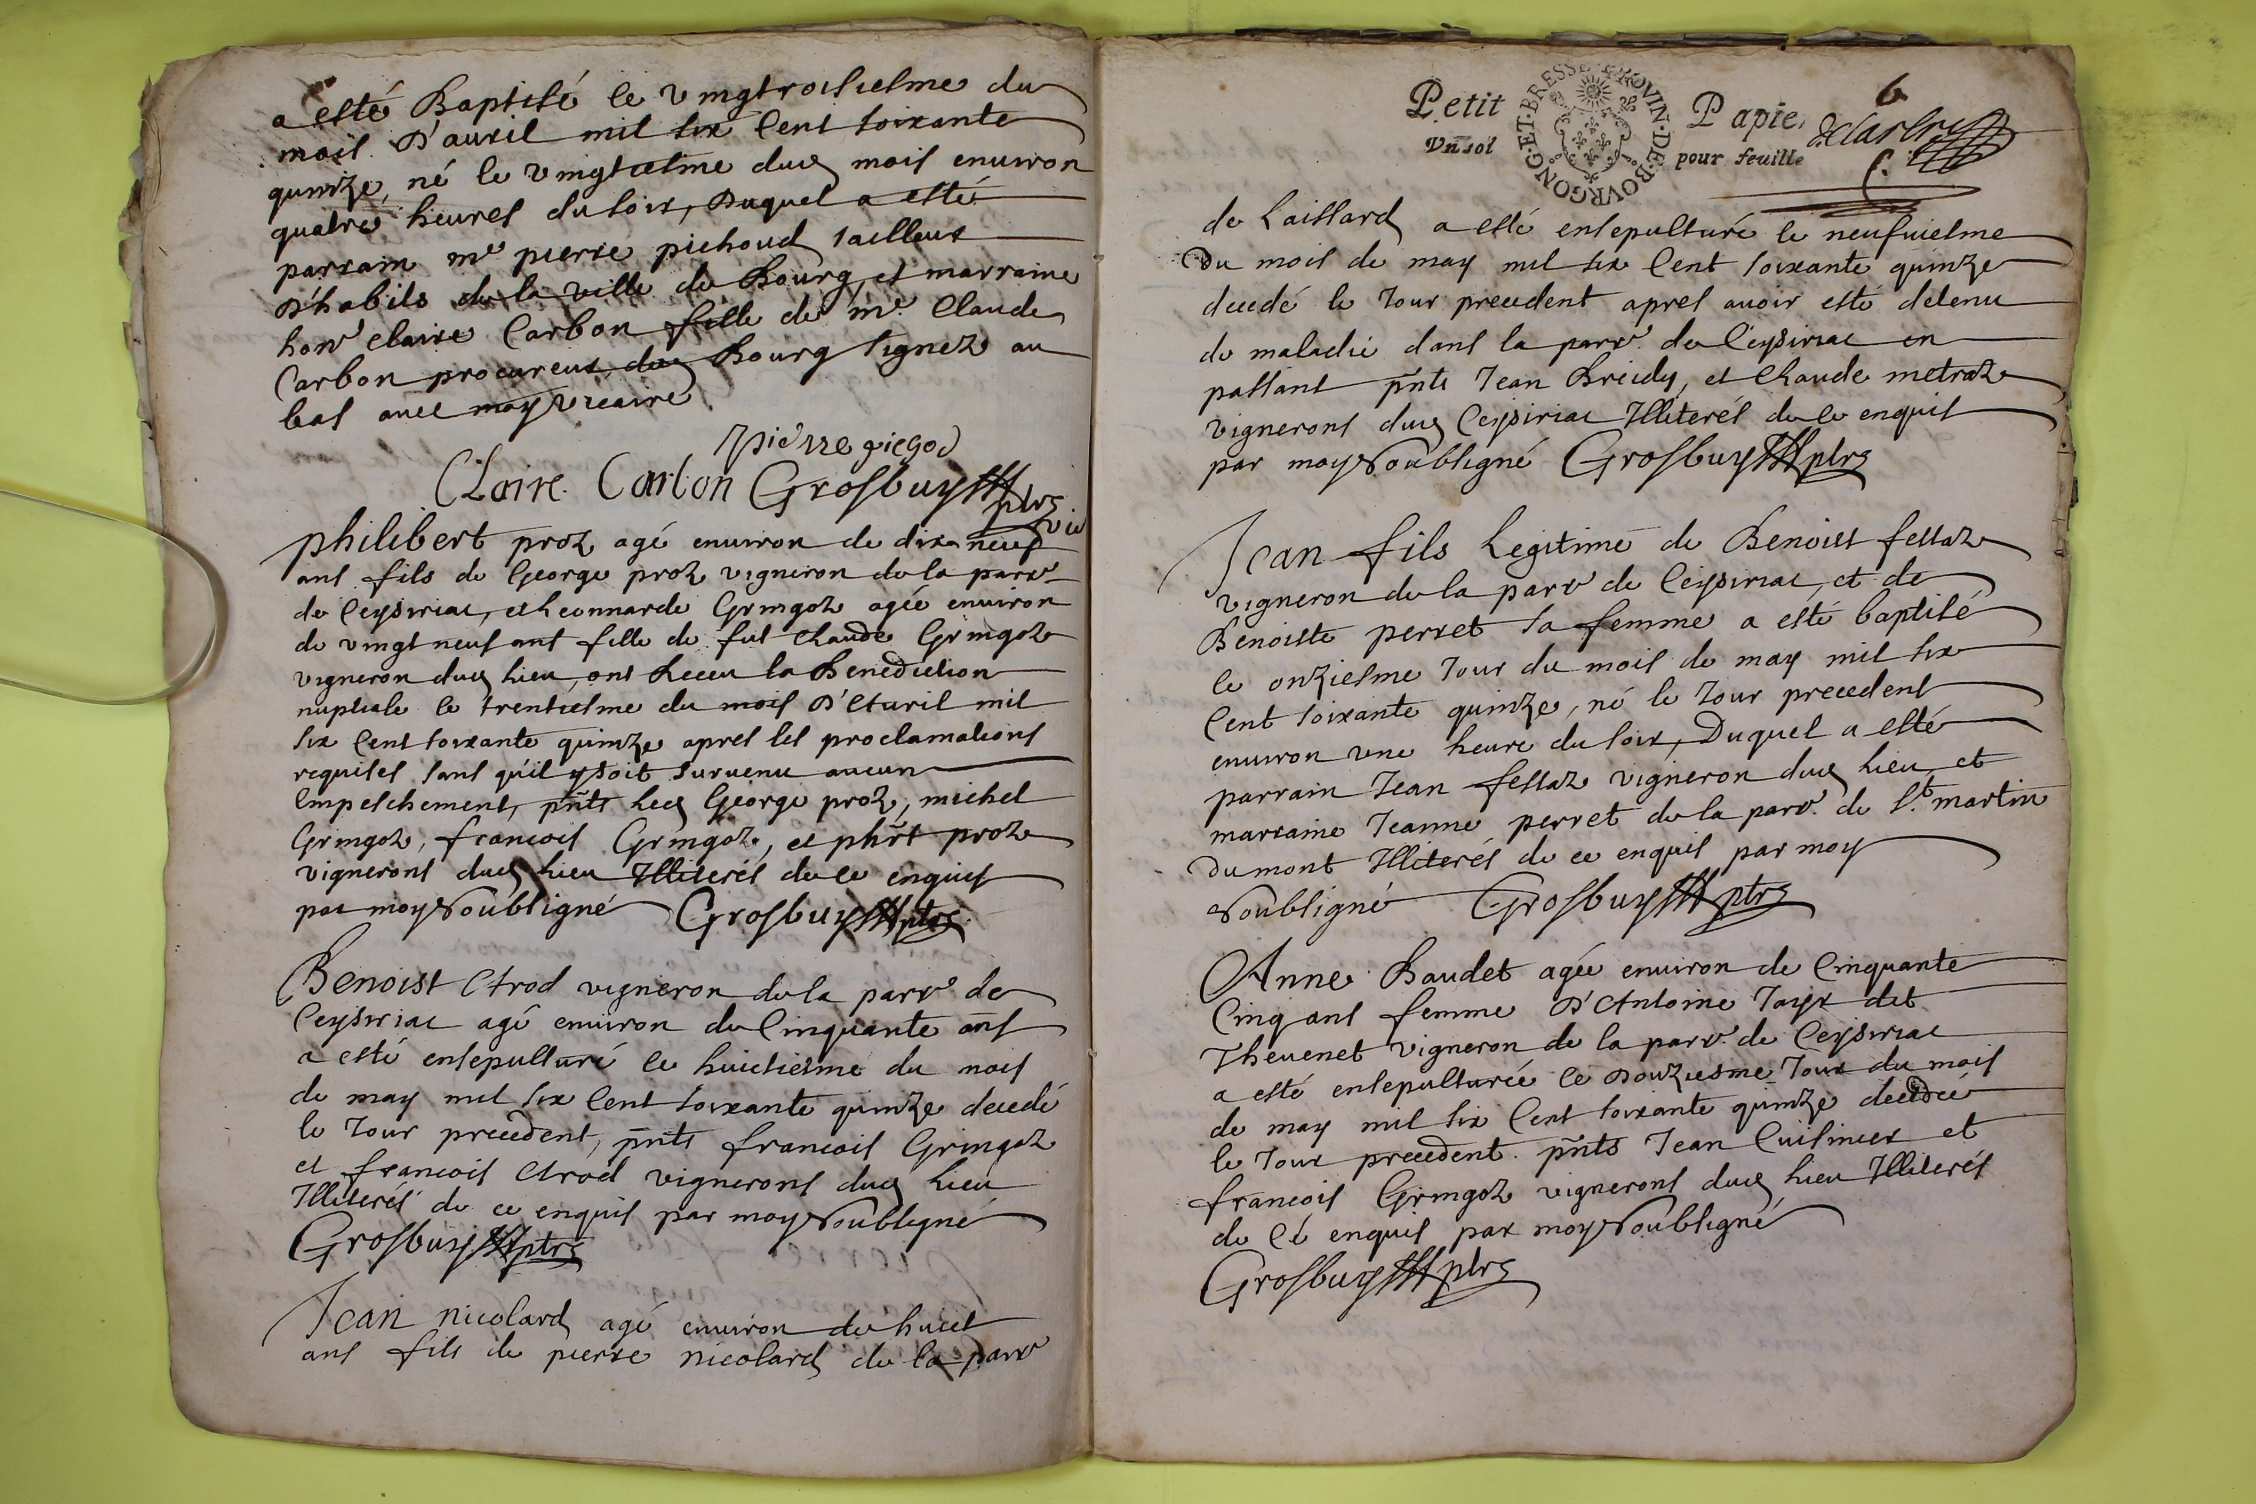 a esté Baptisé le vingtroisiesme du
mois D'auril mil six Cent soixante
quinze, né le vingtiesme dud mois enuiron
quatre heures du soir, Duquel a esté
parrain me pierre pichoud tailleur
D'habits de la ville de Bourg, et marraine
honr Claire Carbon fille de mr. Claude
Carbon procureur dud Bourg signez au
bas auec moy vicaire
pierre pichod
Claire Carbon Grosbuy ptre
vic
philibert proz agé enuiron de dix neuf
ans fils de George proz vigneron de la parr
de Ceysiriac, et Leonnarde Gringoz agée enuiron
de vingt neuf ans fille de fut Claude Gringoz
vigneron dud lieu, ont Receu la Benediction
nuptiale le trentiesme du mois D'Auril mil
six Cent soixante quinze apres les proclamations
requises sans qu'il y soit suruenu aucun
Empeschement, pnts led George proz, michel
Gringoz, francois Gringoz, et phirt proz
vignerons dud lieu Illiterés de ce enquis
par moy soubsigné Grosbuy ptre
Benoist Arod vigneron de la parr de
Ceysiriac agé enuiron de Cinquante ans
a esté ensepulturé le huictiesme du mois
de may mil six Cent soixante quinze decedé
le Jour precedent, pnts francois Gringoz
et francois Arod vignerons dud lieu
Illiterés de ce enquis par moy soubsigné
Grosbuy ptre
Jean nicolard agé enuiron de huict
ans fils de pierre nicolard de la parr
6
Petit Papier
Vn sol pour feuille
BOVRGONG·ET·BRESSE PROVIN·DE
de Laissard a esté ensepulturé le neufuiesme
Du mois de may mil six Cent soixante quinze
decedé le Jour precedent apres auoir esté detenu
de maladie dans la parr. de Ceysiriac en
passant pnts Jean Breidy, et Claude metraz
vignerons dud Ceysiriac Illiterés de ce enquis
par moy soubsigné Grosbuy ptre
Jean fils Legitime de Benoist fessaz
vigneron de la parr de Ceysiriac, et de
Benoiste perret sa femme a esté baptisé
le onziesme Jour du mois de may mil six
Cent soixante quinze, né le Jour precedent
enuiron vne heure du soir, Duquel a esté
parrain Jean fessaz vigneron dud lieu, et
marraine Jeanne perret de la parr. de St. martin
Du mont Illiterés de ce enquis par moy
soubsigné Grosbuy ptre
Anne Baudet agée enuiron de Cinquante
Cinq ans femme D'Antoine Jayr dit
Theuenet vigneron de la parr. de Ceysiriac
a esté ensepulturée le Douziesme Jour du mois
de may mil six Cent soixante quinze decedée
le Jour precedent. pnts Jean Cuisinier et
francois Gringoz vignerons dud lieu Illiterés
de Cé enquis par moy soubsigné
Grosbuy ptre